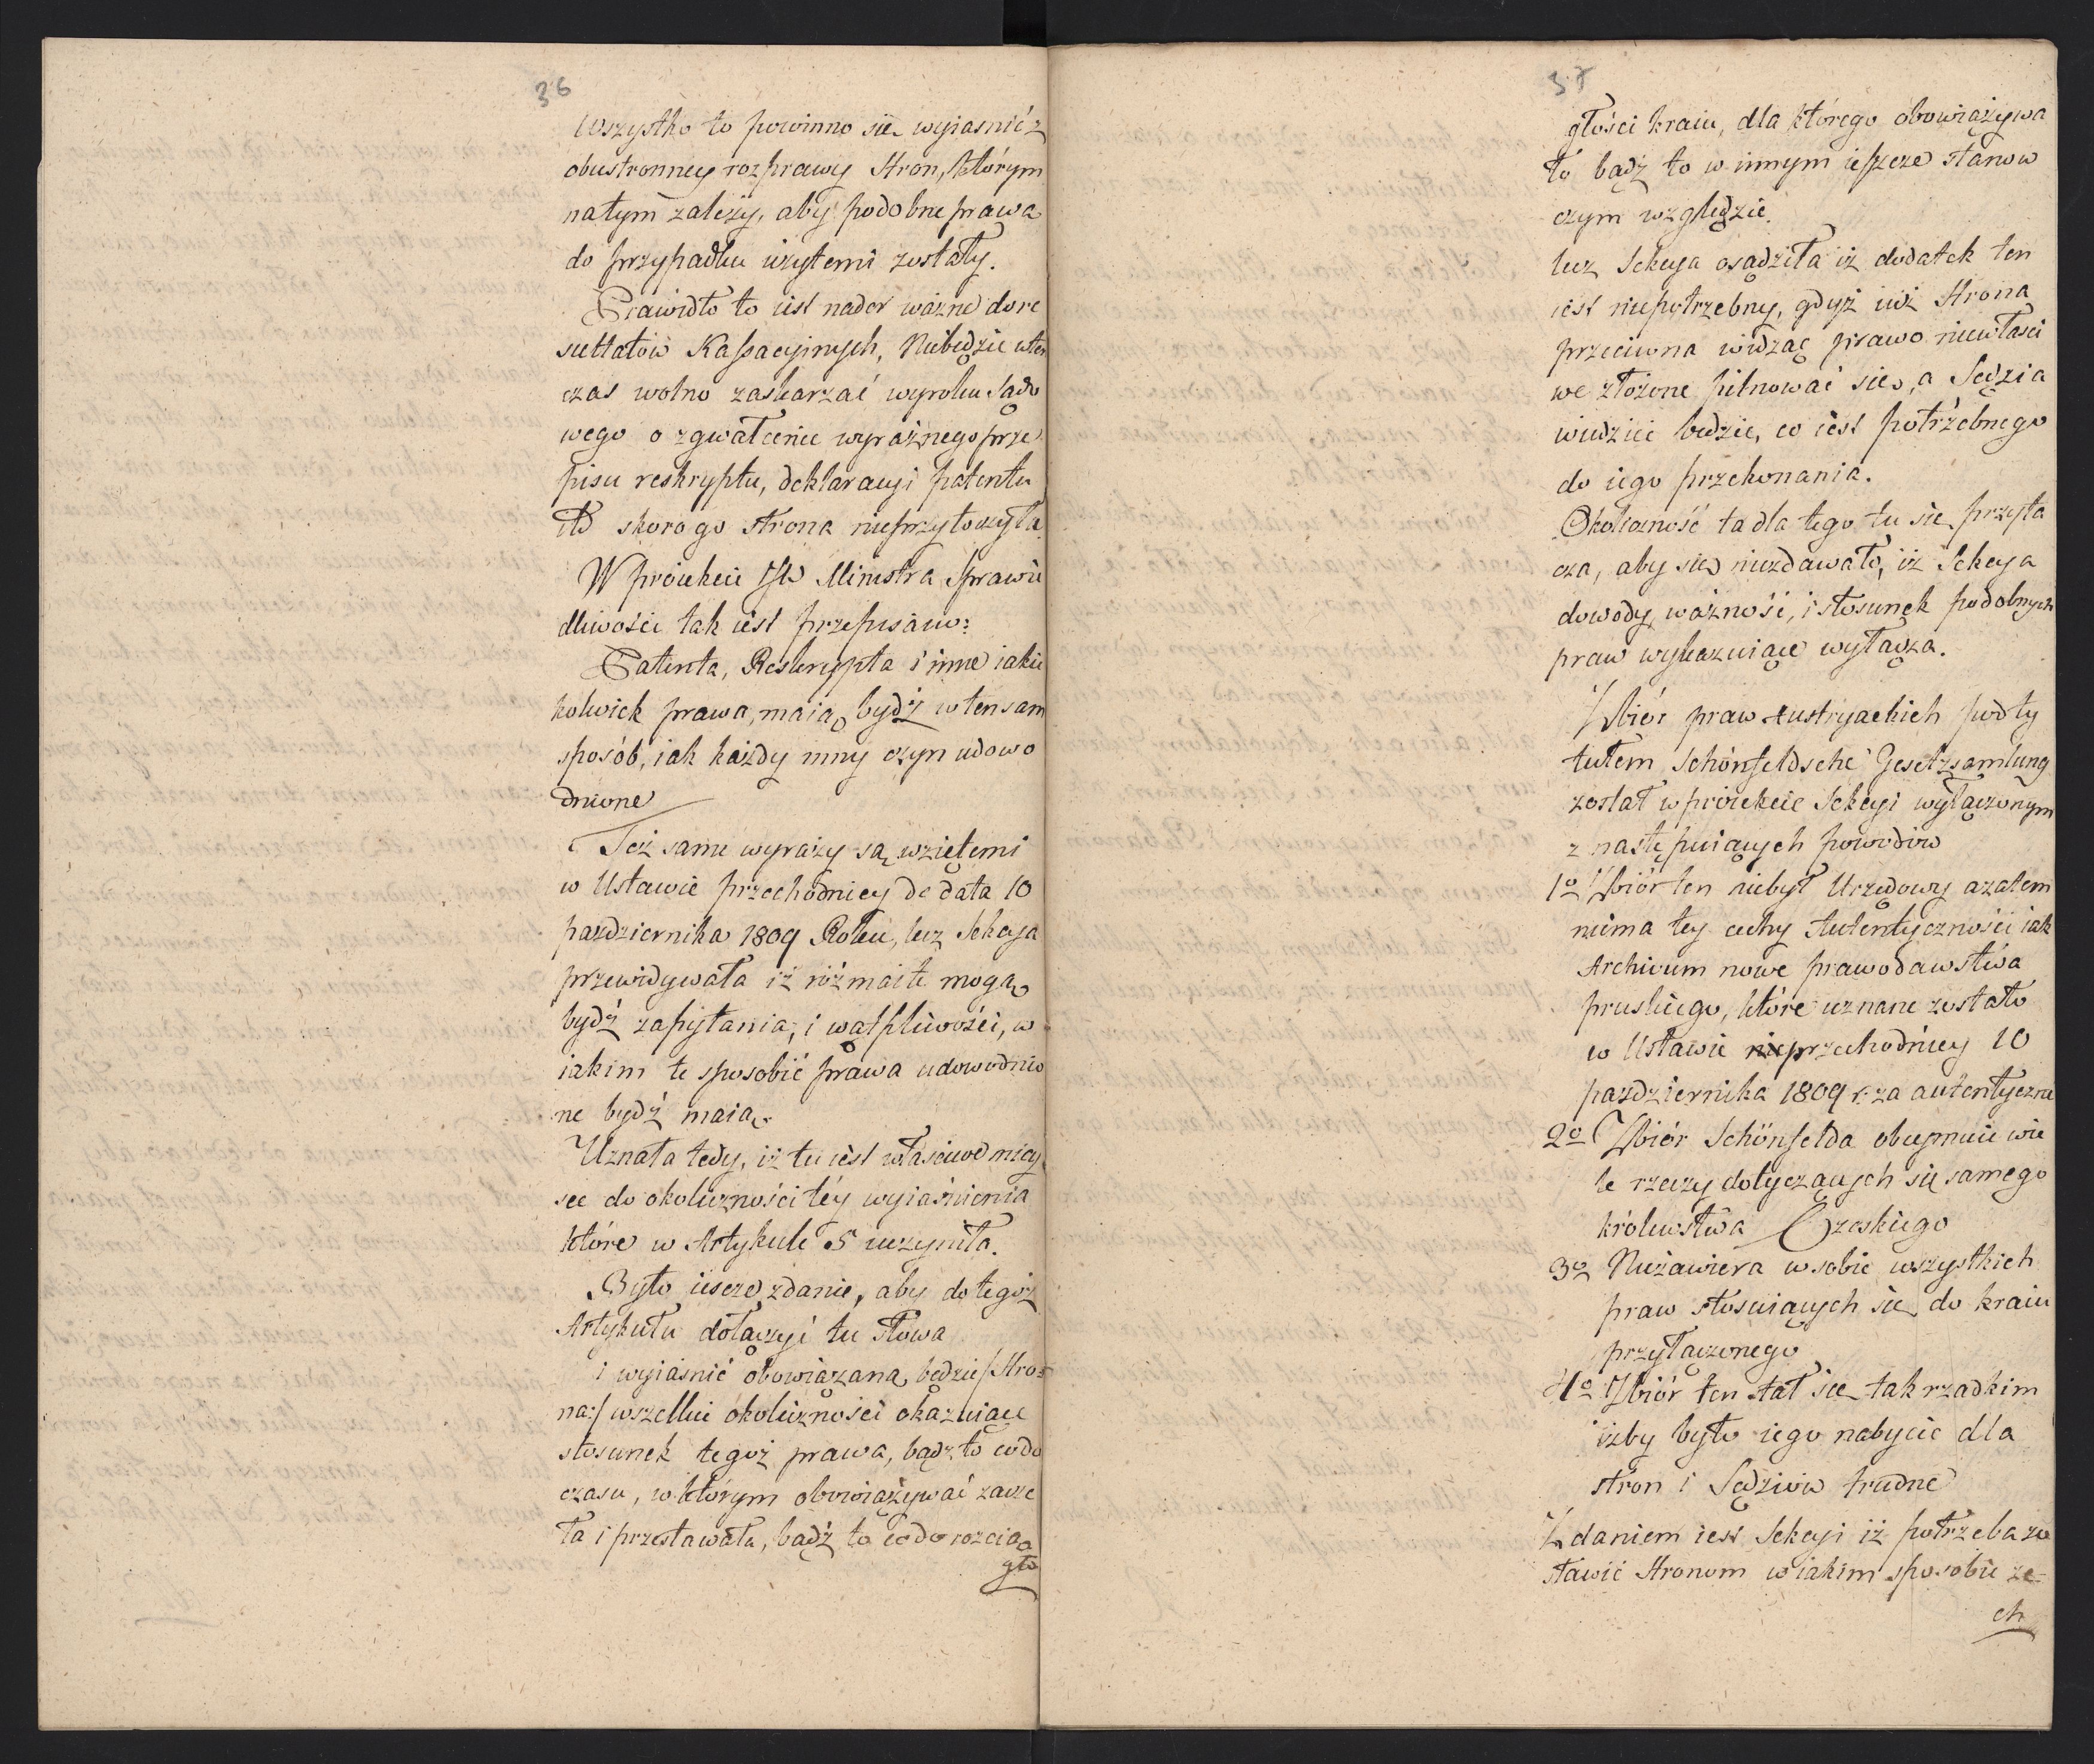 36
Wszystko to powinno się wyiasnić z
obustronney rozprawy Stron, którym
natym zależy, aby podobne prawa
do przypadku użytemi zostały.
Prawidło to iest nader ważne do re
sultatów Kassacyinych, Niebędzie wten
czas wolno zaskarzać wyroku Sądo
wego o zgwałcenie wyraźnego prze
pisu reskryptu, deklaracyi patentu
itd skoro go strona nieprzytoczyła.
W proiekcie JW Ministra Sprawie
dliwości tak iest przepisano:
Patenta, Reskrypta i inne iakie
kolwiek prawa, maią bydź w ten sam
sposób, iak każdy inny czyn udowo
dnione
Też same wyrazy są wziętemi
w Ustawie przechodniey de data 10
pazdziernika 1809 Roku, lecz Sekcya
przewidywała iż różmaite mogą
bydź zapytania, i wątpliwości, w
iakim te sposobie prawa udowodnio
ne bydź maią.
Uznała tedy, iż tu iest właściwe miey
sce do okoliczności téy wyiaśnienia
które w Artykule 5 uczyniła.
Było iescze zdanie, aby do tegoż
Artykułu dołączyć tu słowa
i wyiasnić obowiązana będzie /:Stro=
na:/ wszelkie okoliczności okazuiące
stosunek tegoż prawa, bądź to co do
czasu, w którym obowiązywać zaczę
ła i przestawała, bądź to co do rozcią
gło
37
głości kraiu, dla którego obowiązywa
ło bądź to w innym ieszcze stanow
czym względzie.
lecz Sekcya osądziła iż dodatek ten
iest niepotrzebny, gdyż iuż Strona
przeciwna widząc prawo niewłaści
we złożone pilnować się, a Sędzia
wiedzieć będzie, co iest potrzebnego
do iego przekonania.
Okoliczność ta dla tego tu się przyta
cza, aby się niezdawało, iż Sekcya
dowody, ważność, i stosunek podobnych
praw wykazuiące wyłącza.
Zbiór praw Austryackich pod ty
tułem Schönfeldsche Gesetzsamlung
został w proiekcie Sekcyi wyłączonym
z następuiących powodów
1o Zbiór ten niebył Urzędowy a zatem
niema tey cechy Autentyczności iak
Archivum nowe prawodawstwa
pruskiego, które uznane zostało
w Ustawie przechodniey 10
pazdziernika 1809 r. za autentyczne
2o Zbiór Schönfelda obeymuie wie
le rzeczy dotyczących się samego
królewstwa Czeskiego
3o Niezawiera w sobie wszystkich
praw stosuiących się do kraiu
przyłączonego
4o Zbiór ten stał się tak rzadkim
iżby było iego nabycie dla
stron i Sędziów trudne
Zdaniem iest Sekcyi iż potrzeba zo
stawić Stronom w iakim sposobie ze-
ch